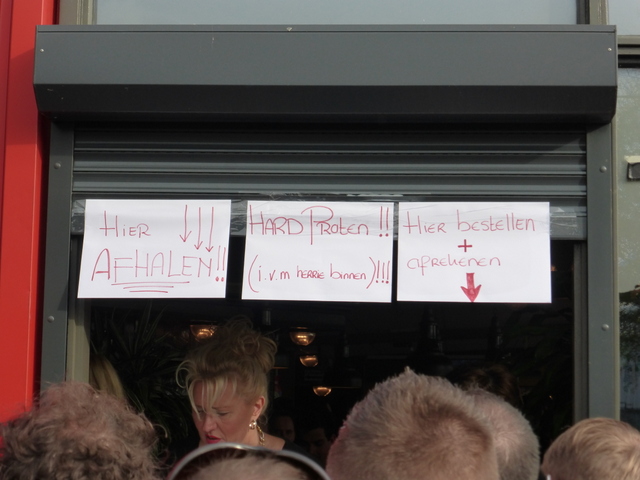 HIER
AFHALEN!!
HARD Praten !!
(i.v.m HERRIE binnen)!!!
HIER bestellen
+
afrekenen